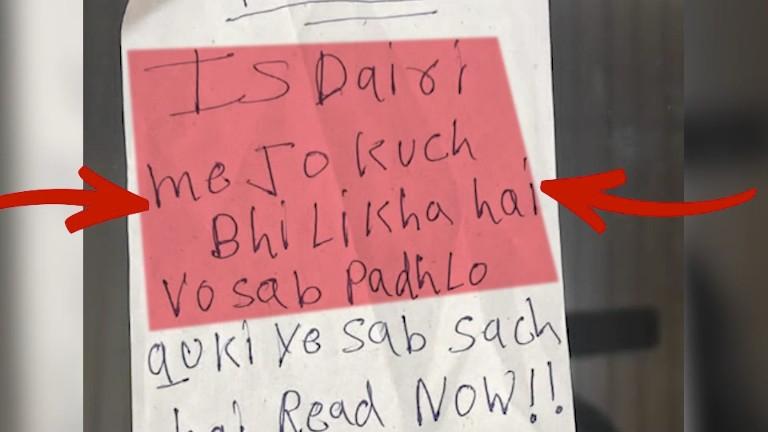 IS Dairi
me Jo kuch
Bhi Likha hai
Vo sab Padh Lo
quki ye sab sach
hai Read NOW!!